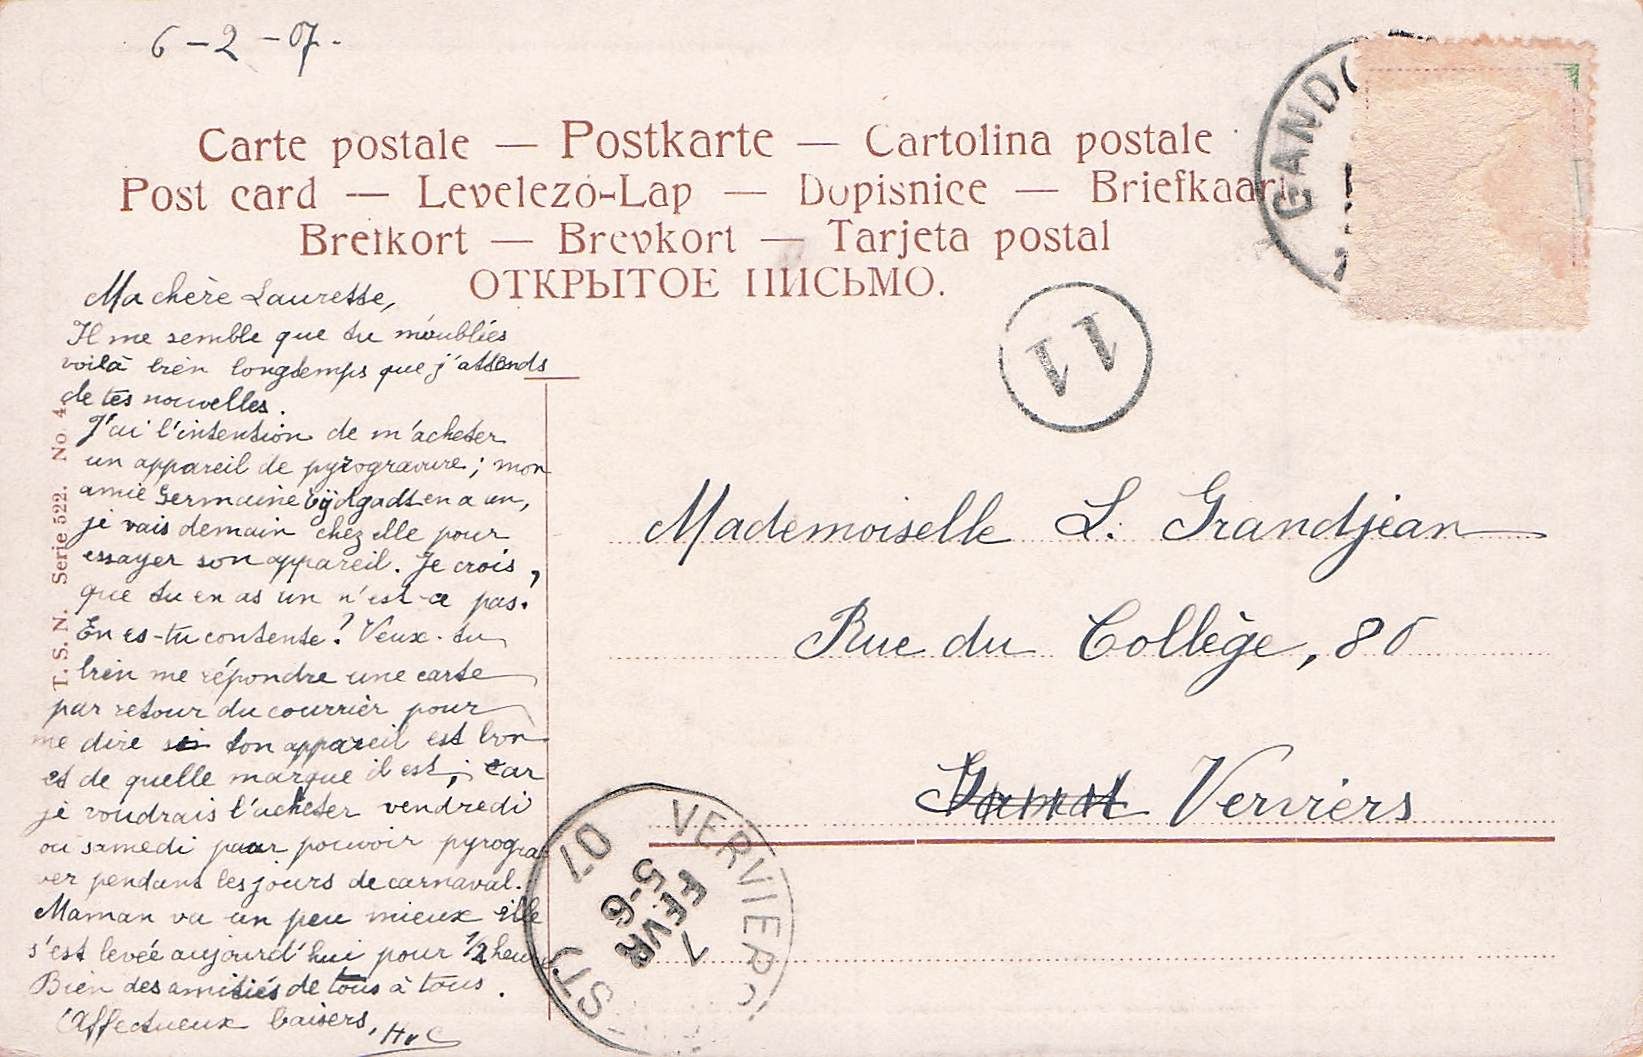 6-2-07.
Carte postale — Postkarte — Cartolina postale
Post card — Levelező-Lap — Dopisnice — Briefkaart
Brefkort — Brevkort — Tarjeta postal
ОТКРЫТОЕ ПИСЬМО.
GAND
11
Ma chère Laurette,
Il me semble que tu m'oublies
voilà bien longtemps que j'attends
de tes nouvelles.
J'ai l'intention de m'acheter
un appareil de pyrogravure; mon
amie Germaine en a un,
je vais demain chez elle pour
essayer son appareil. Je crois,
que tu en as un n'est-ce pas.
En es-tu contente? Veux-tu
bien me répondre une carte
par retour du courrier pour
me dire si ton appareil est bon
et de quelle marque il est; car
je voudrais l'acheter vendredi
ou samedi pour pouvoir pyrogra-
ver pendant les jours de carnaval.
Maman va un peu mieux elle
s'est levée aujourd'hui pour 1/2 heure
Bien des amitiés de tous à tous.
Affectueux baisers, HvC
T. S. N. Serie 522. No. 4.
Mademoiselle L. Grandjean
Rue du Collège, 80
Verviers
VERVIERS
7
FEVR
5-6
07